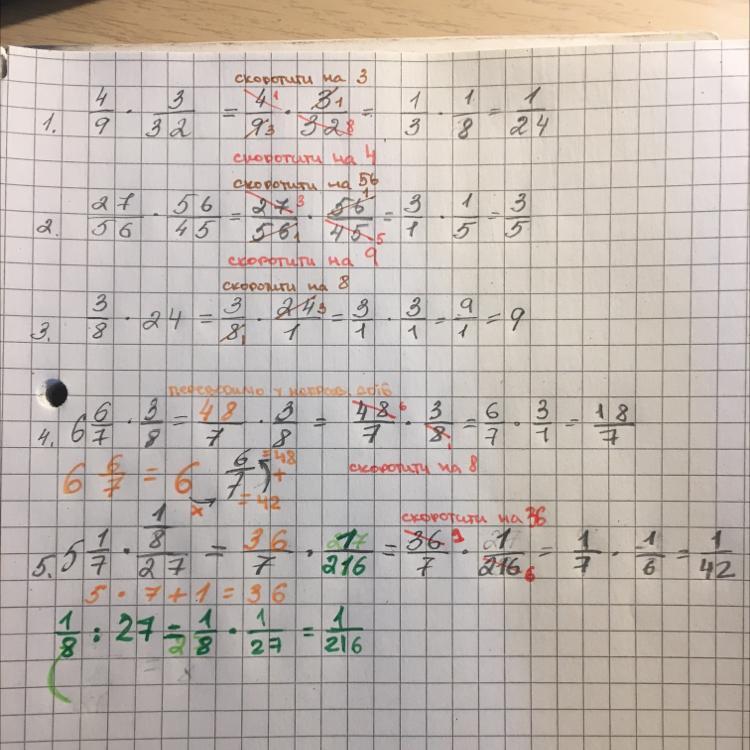 скоротити на 3
1. 4/9 · 3/32 = 4 1/9 3 · 3 1/32 8 = 1/3 · 1/8 = 1/24
скоротити на 4
скоротити на 56
2. 27/56 · 56/45 = 27 3/56 1 · 56 1/45 5 = 3/1 · 1/5 = 3/5
скоротити на 9
скоротити на 8
3. 3/8 · 24 = 3/8 1 · 24 3/1 = 3/1 · 3/1 = 9/1 = 9
4. 6 6/7 · 3/8 = 48/7 · 3/8 = 48 6/7 · 3/8 1 = 6/7 · 3/1 = 18/7
6 6/7 = 6 6/7 x = 42 + = 48
скоротити на 8
скоротити на 36
5. 5 1/7 · 1/8/27 = 36/7 · 1/216 = 36 1/7 · 1/216 6 = 1/7 · 1/6 = 1/42
5 · 7 + 1 = 36
1/8 : 27 = 1/8 · 1/27 = 1/216